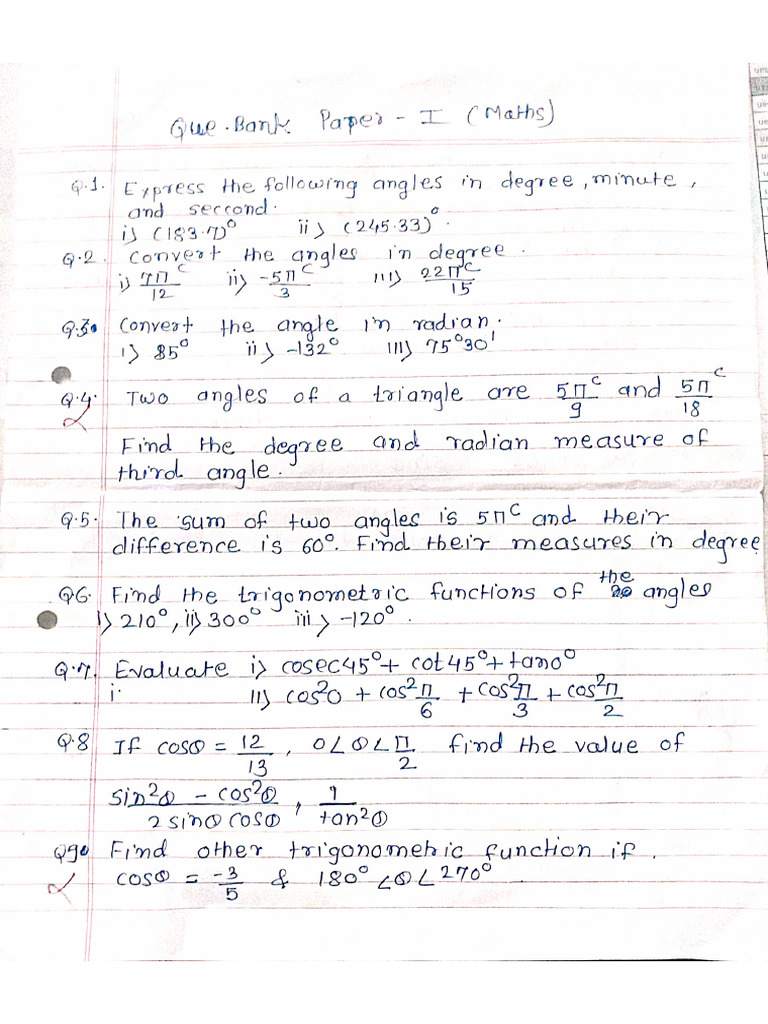 Que. Bank Paper - I (Maths)
Q.1. Express the following angles in degree, minute,
and seccond.
i) (183.7)° ii) (245.33)°.
Q.2. Convert the angles in degree.
i) 7π/12 ᶜ ii) -5π/3 ᶜ iii) 22π/15 ᶜ
Q.3. Convert the angle in radian.
i) 85° ii) -132° III) 75°30'
Q.4. Two angles of a triangle are 5π/9 ᶜ and 5π/18 ᶜ
Find the degree and radian measure of
third angle.
Q.5. The sum of two angles is 5πᶜ and their
difference is 60°. Find their measures in degree
Q6. Find the trigonometric functions of the angles
i) 210°, ii) 300° iii) -120°.
Q.7. Evaluate i) cosec45° + cot45° + tan0°
i. II) cos²0 + cos²π/6 + cos²π/3 + cos²π/2
Q.8 If cosθ = 12/13, 0<θ<π/2 find the value of
sin²θ - cos²θ / 2 sinθ cosθ, 1/tan²θ
Q9. Find other trigonometric function if.
cosθ = -3/5 & 180° <θ< 270°